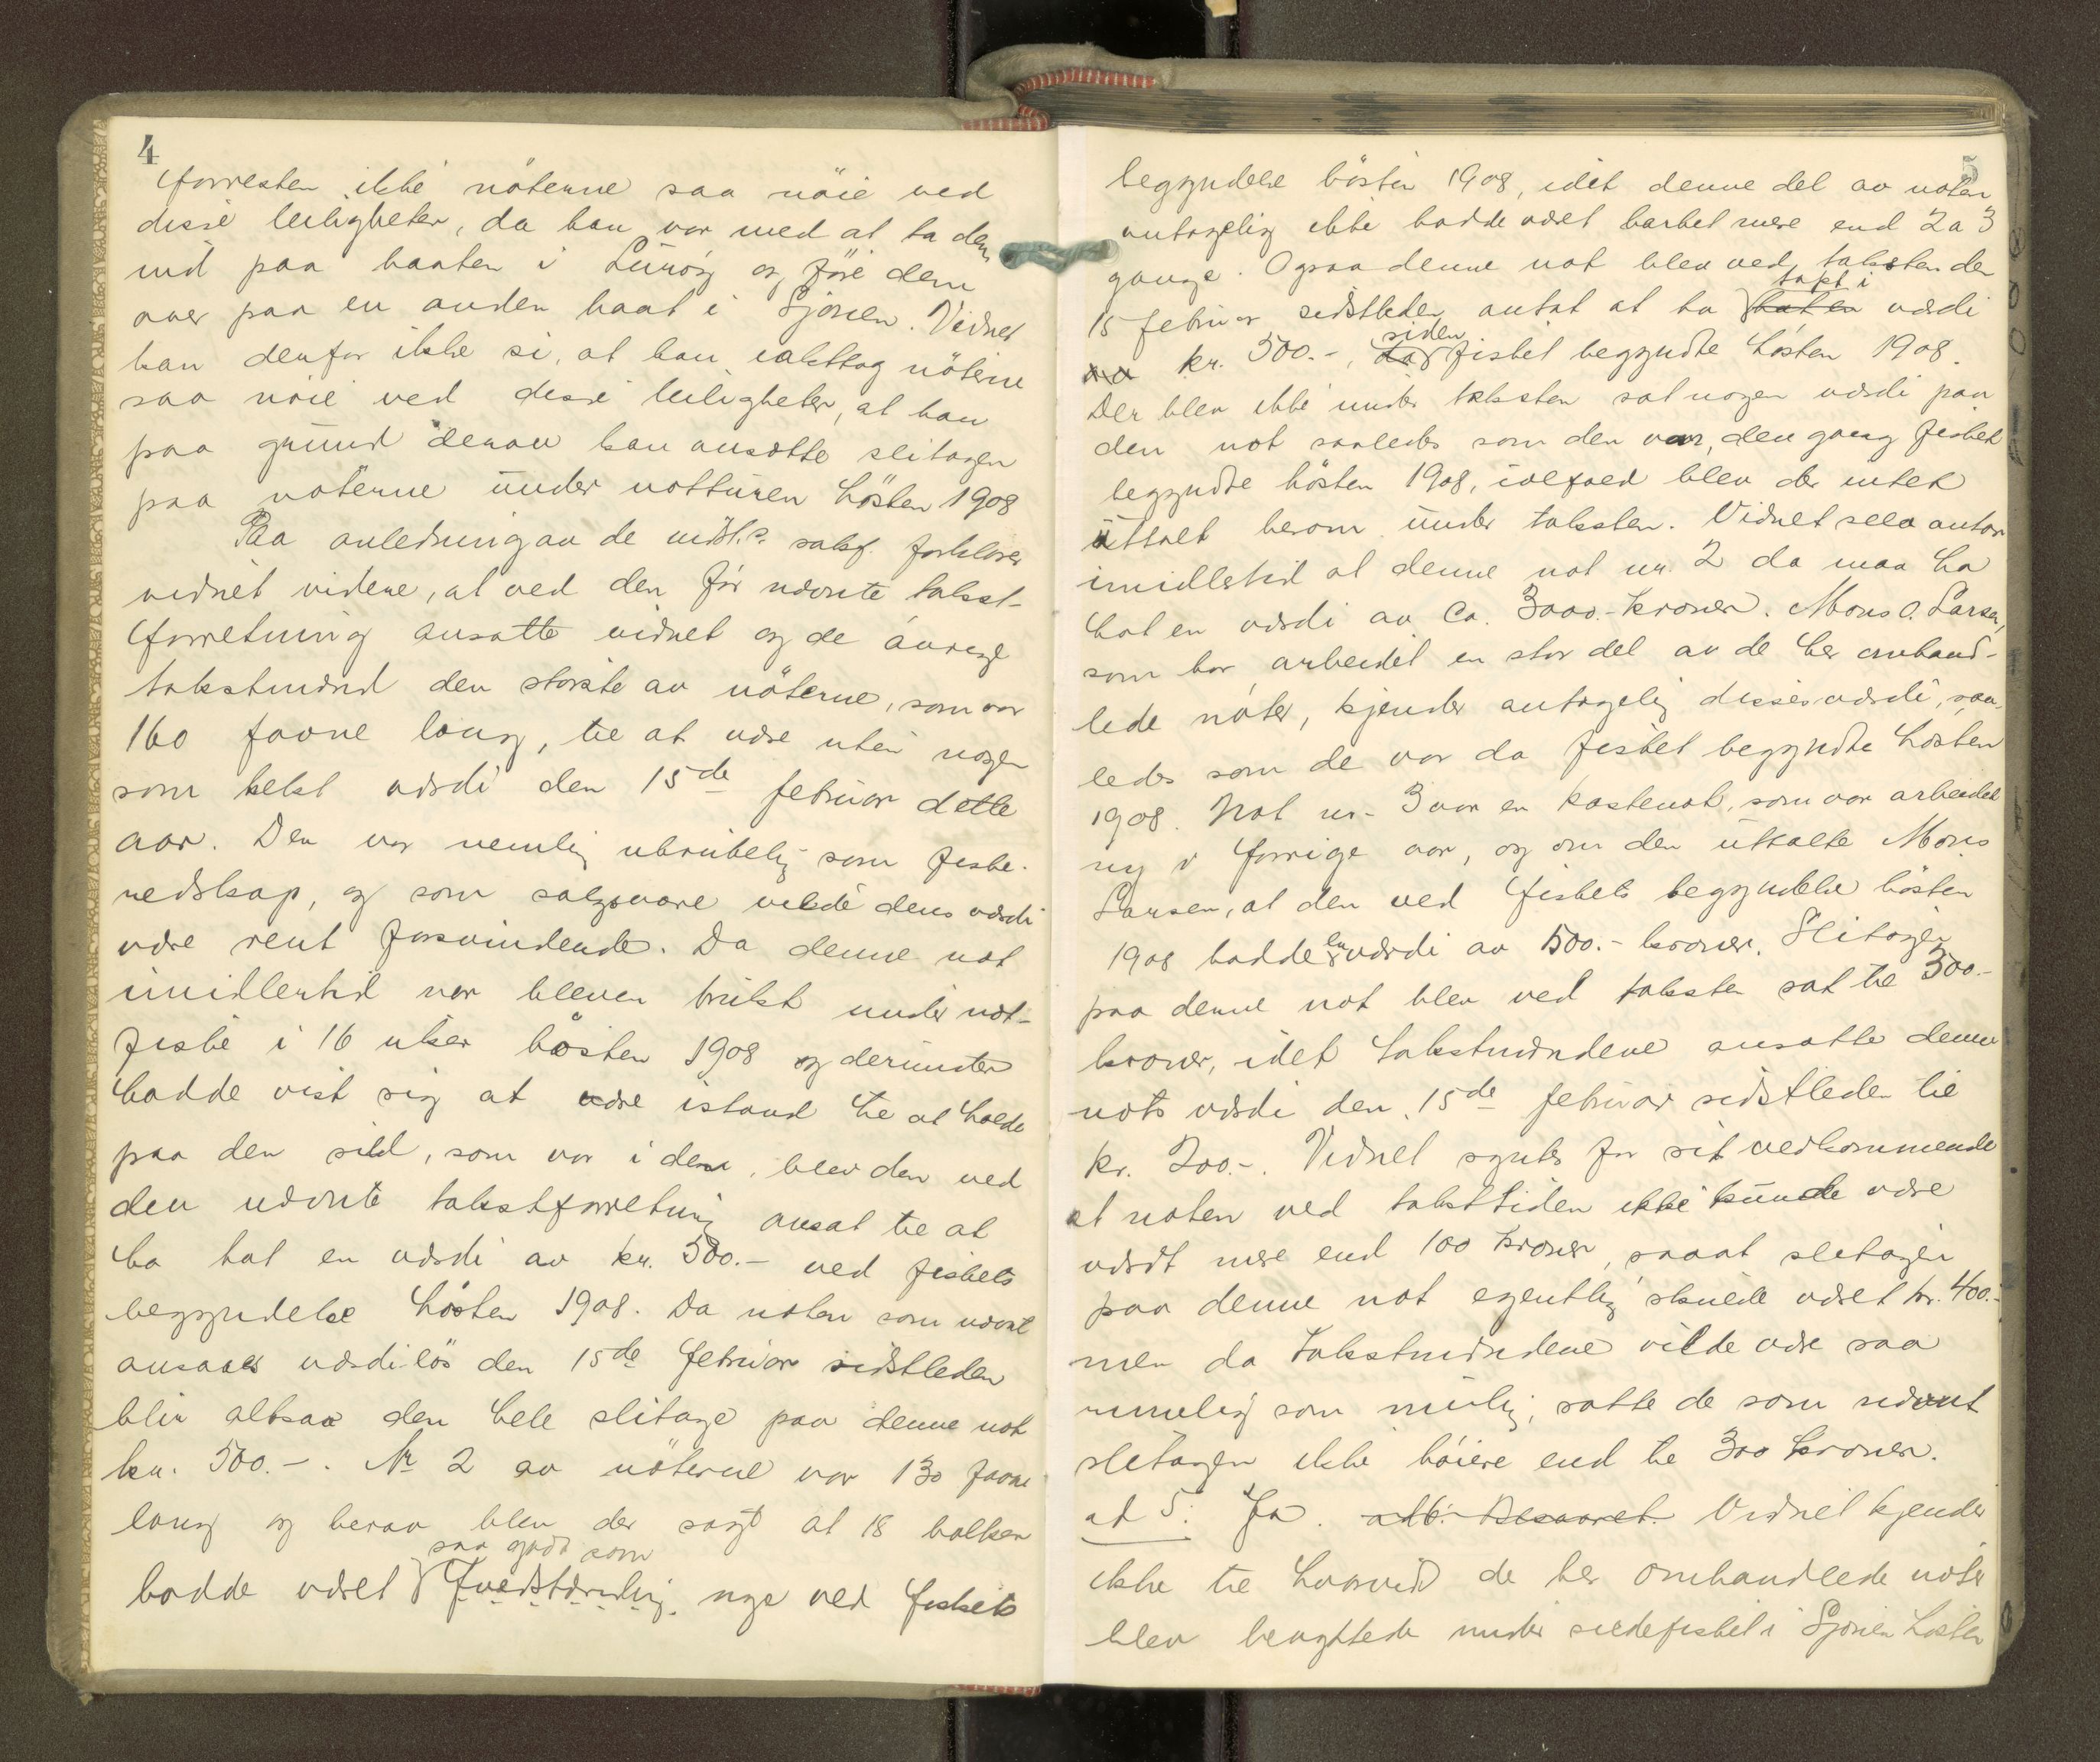 4
forresten ikke nöterne saa nöie ved
disse leiligheter, da han var med at ta dem
ind paa baaten i Luröy og före dem
over paa en anden baat i Sjonen. Vidnet
kan derfor ikke si, at han iakttog nöterne
saa nöie ved disse leiligheter, at han
paa grund derav kan ansætte slitagen
paa nöterne under notturen hösten 1908
Paa anledning av de indst. saksf. forklarer
vidnet videre, at ved den för nævnte takst-
forretning ansatte vidnet og de övrige
takstmænd den störste av nöterne, som var
160 favne lang, til at være uten nogen
som helst værdi den 15de februar dette
aar. Den var nemlig ubrukelig som fiske-
redskap, og som salgsvare vilde dens værdi
være rent forsvindende. Da denne not
imidlertid var bleven brukt under not-
fiske i 16 uker hösten 1908 og derunder
hadde vist sig at være istand til at holde
paa den sild, som var i den, blev den ved
den nævnte takstforretning ansat til at
ha hat en værdi av kr. 500.- ved fiskets
begyndelse hösten 1908. Da noten som nævnt
ansaaes værdilös den 15de februar sidstleden
blir altsaa den hele slitage paa denne not
kr. 500.-. No 2 av nöterne var 130 favne
lang og herav blev der sagt at 18 balker
saa godt som
hadde været fuldstændig nye ved fiskets
5
begyndelse hösten 1908, idet denne del av noten
antagelig ikke hadde været barket mere end 2 a 3
gange. Ogsaa denne not blev ved taksten den
tapt i
15 februar sidstleden antat at ha hat en værdi
siden
av kr. 500.-, da fisket begyndte hösten 1908.
Der blev ikke under taksten sat nogen værdi paa
den not saaledes som den var, den gang fisket
begyndte hösten 1908, ialfald blev der intet
uttalt herom under taksten. Vidnet selv antar
imidlertid at denne not nr. 2 da maa ha
hat en værdi av ca. 3000.- kroner. Mons O. Larsen,
som har arbeidet en stor del av de her omhand-
lede nöter, kjender antagelig disses værdi, saa-
ledes som de var da fisket begyndte hösten
1908. Not nr. 3 var en kastenot, som var arbeidet
ny i forrige aar, og om den uttalte Mons
Larsen, at den ved fiskets begyndelse hösten
en
1908 hadde værdi av 500.- kroner. Slitagen
paa denne not blev ved taksten sat til 300.-
kroner, idet takstmændene ansatte denne
nots værdi den 15de februar sidstleden til
kr. 200.-. Vidnet syntes for sit vedkommende
at noten ved taksttiden ikke kunde være
værdt mere end 100 kroner, saaat slitagen
paa denne not egentlig skulde været kr. 400.-
men da takstmændene vilde være saa
rimelig som mulig, satte de som nævnt
slitagen ikke höiere end til 300 kroner.
ad 5: Ja. ad 6: Besvaret. Vidnet kjender
ikke til hvorvid de her omhandlede nöter
blev benyttede under sildefisket i Sjonen hösten